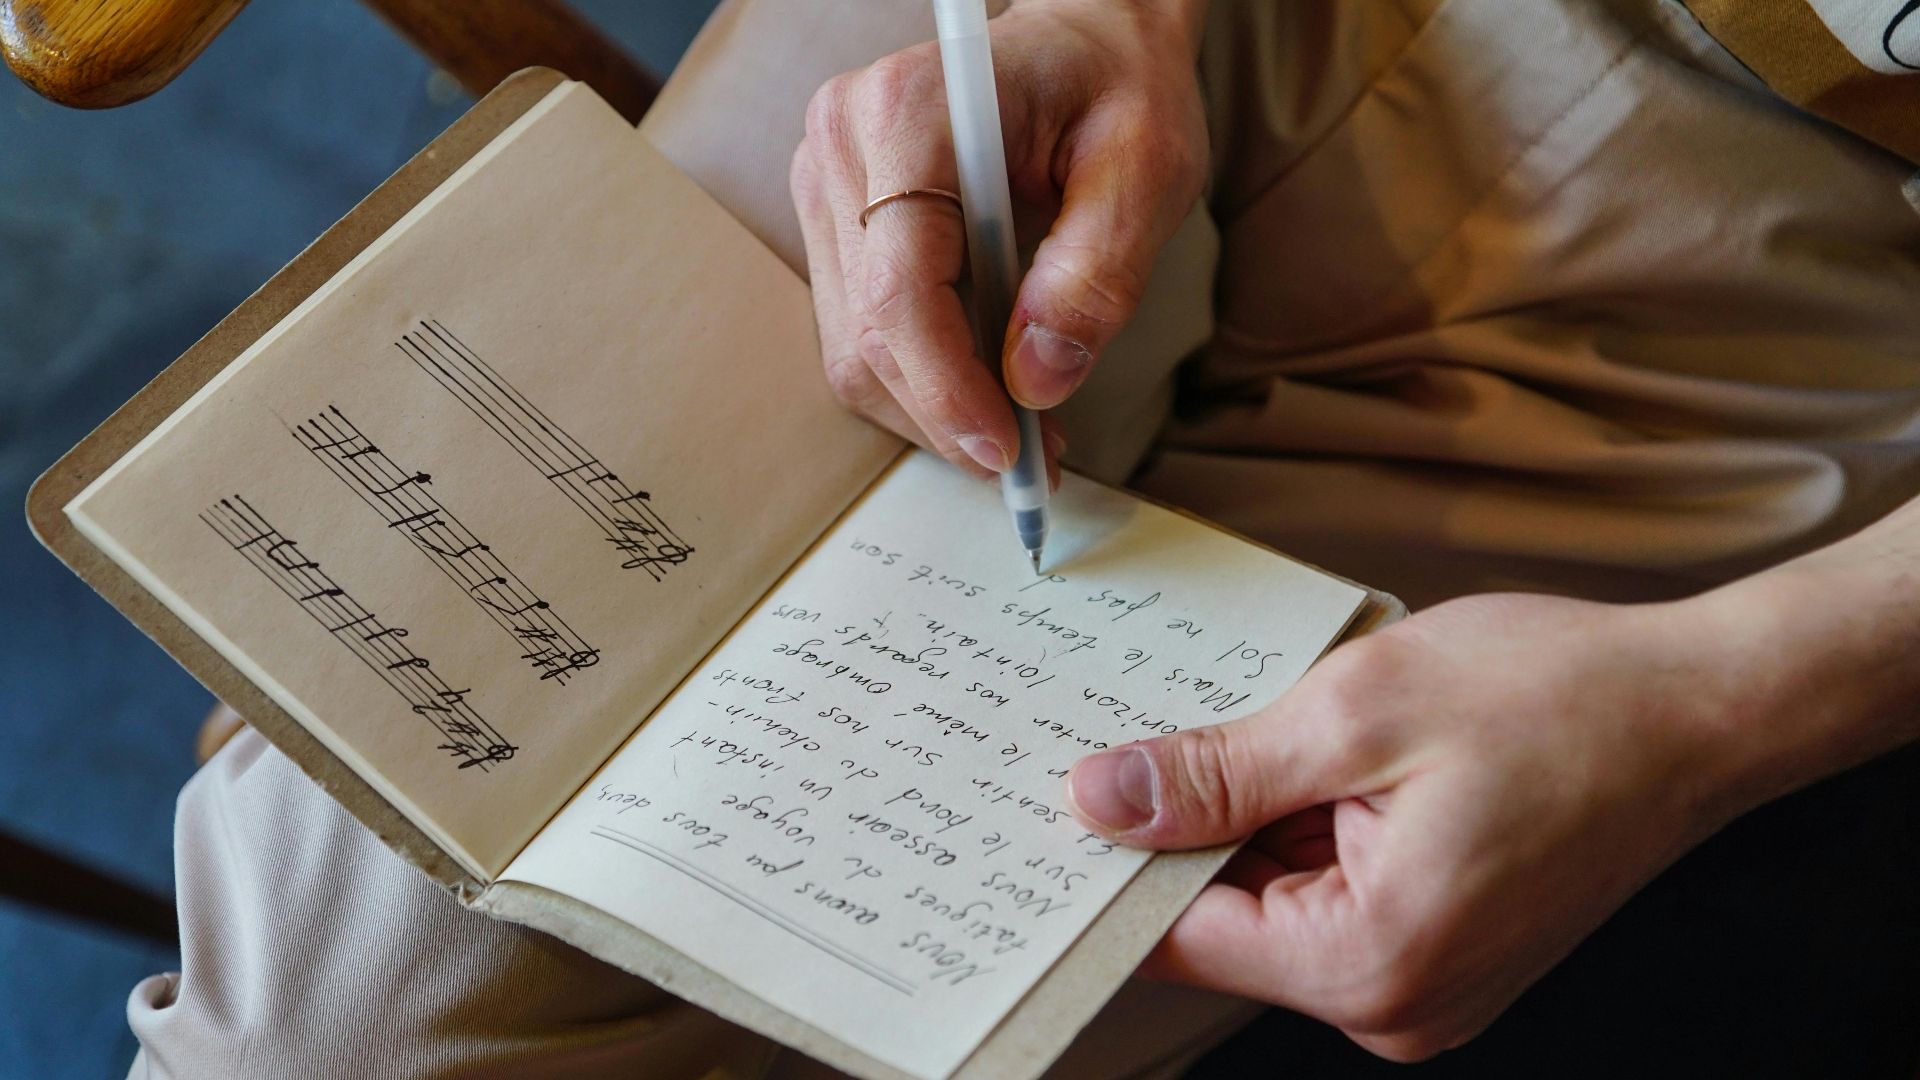 Nous avons pu tous deux,
fatigués du voyage
Nous asseoir un instant
sur le bord du chemin -
Et sentir sur nos fronts
le même ombrage
nos regards vers
horizon lointain.
Mais le temps suit son
Sol ne pas d